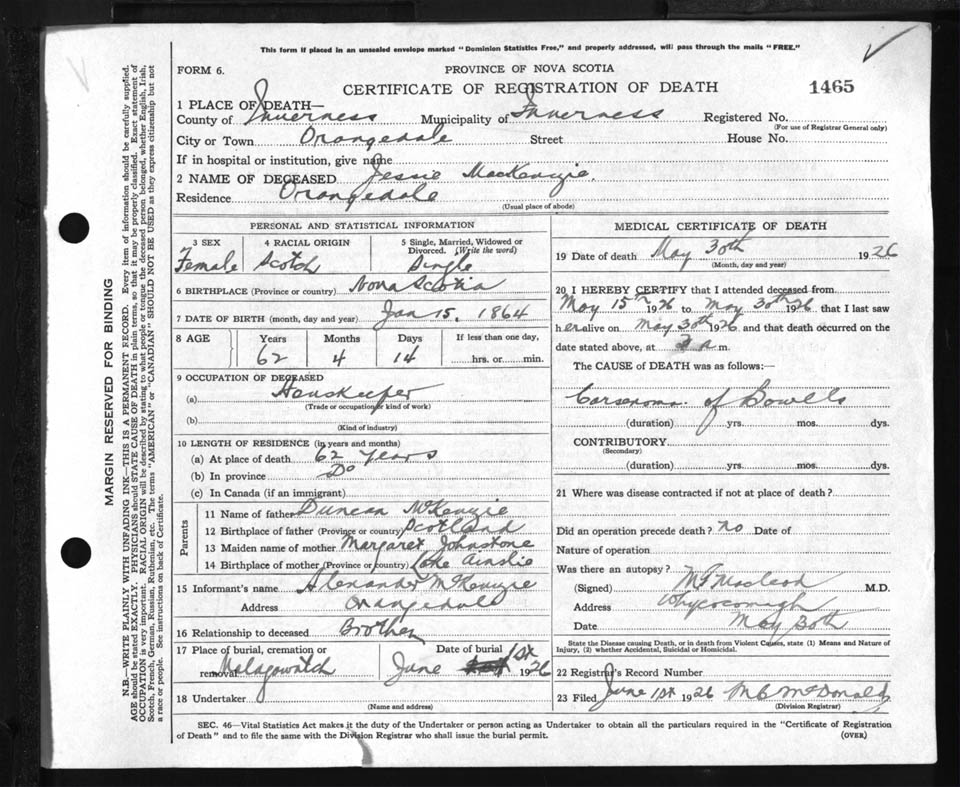 This form if placed in an unsealed envelope marked "Dominion Statistics Free," and properly addressed, will pass through the mails "FREE."
FORM 6.
PROVINCE OF NOVA SCOTIA
CERTIFICATE OF REGISTRATION OF DEATH
1465
1 PLACE OF DEATH—
County of Inverness Municipality of Inverness Registered No.
(For use of Registrar General only)
City or Town Orangedale Street House No.
If in hospital or institution, give name
2 NAME OF DECEASED Jessie MacKenzie.
Residence Orangedale
(Usual place of abode)
PERSONAL AND STATISTICAL INFORMATION
3 SEX
Female
4 RACIAL ORIGIN
Scotch
5 Single, Married, Widowed or Divorced. (Write the word)
Single
6 BIRTHPLACE (Province or country) Nova Scotia
7 DATE OF BIRTH (month, day and year) Jan 15, 1864
8 AGE
Years Months Days If less than one day,
62 4 14 hrs. or min.
9 OCCUPATION OF DECEASED
(a) Houskeeper
(Trade or occupation or kind of work)
(b)
(Kind of industry)
10 LENGTH OF RESIDENCE (in years and months)
(a) At place of death 62 Years
(b) In province Do
(c) In Canada (if an immigrant)
Parents
11 Name of father Duncan McKenzie
12 Birthplace of father (Province or country) Scotland
13 Maiden name of mother Margaret Johnstone
14 Birthplace of mother (Province or country) Lake Ainslie
15 Informant's name Alexander McKenzie
Address Orangedale
16 Relationship to deceased Brother
17 Place of burial, cremation or removal Malagawatch
Date of burial June 1st 1926
18 Undertaker
(Name and address)
MEDICAL CERTIFICATE OF DEATH
19 Date of death May 30th 1926
(Month, day and year)
20 I HEREBY CERTIFY that I attended deceased from
May 15th 1926 to May 30th 1926 that I last saw
her alive on May 30th 1926 and that death occurred on
date stated above, at a m.
The CAUSE of DEATH was as follows:—
Carsenoma of Bowells
(duration) yrs. mos. dys.
CONTRIBUTORY
(Secondary)
(duration) yrs. mos. dys.
21 Where was disease contracted if not at place of death?
Did an operation precede death? no Date of
Nature of operation
Was there an autopsy?
(Signed) Macleod M.D.
Address Whycocomagh
Date May 30th
State the Disease causing Death, or in death from Violent Causes, state (1) Means and Nature of
Injury, (2) whether Accidental, Suicidal or Homicidal.
22 Registrar's Record Number
23 Filed June 1st 1926 McDonald
(Division Registrar)
SEC. 46—Vital Statistics Act makes it the duty of the Undertaker or person acting as Undertaker to obtain all the particulars required in the "Certificate of Registration
of Death" and to file the same with the Division Registrar who shall issue the burial permit.
(OVER)
MARGIN RESERVED FOR BINDING
N.B.—WRITE PLAINLY WITH UNFADING INK—THIS IS A PERMANENT RECORD. Every item of information should be carefully supplied.
AGE should be stated EXACTLY. PHYSICIANS should STATE CAUSE OF DEATH in plain terms, so that it may be properly classified. Exact statement of
OCCUPATION is very important. RACIAL ORIGIN will be described by stating to what people or tongue the deceased person belonged, whether English, Irish,
Scotch, French, German, Russian, Ruthenian, etc. The terms "AMERICAN" or "CANADIAN" SHOULD NOT BE USED as they express citizenship but not
a race or people. See instructions on back of Certificate.